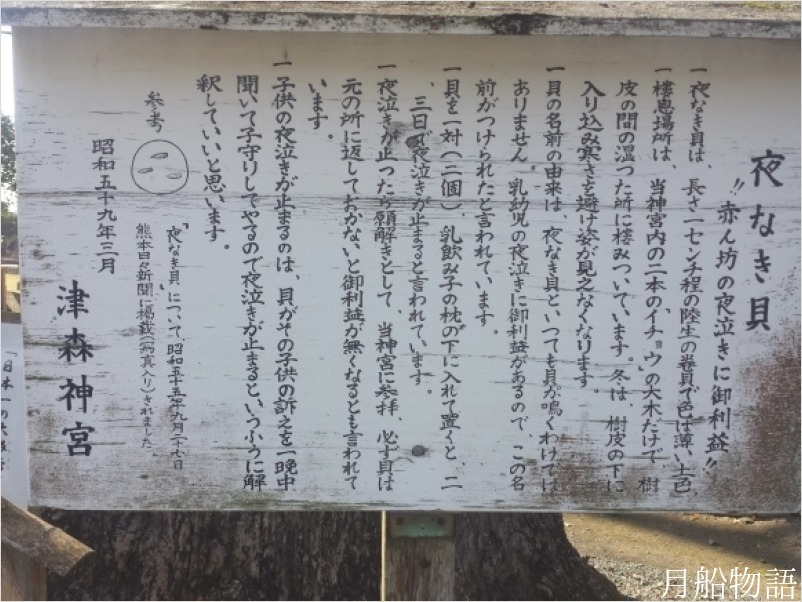 夜なき貝
‼赤ん坊の夜泣きに御利益‼
一夜なき貝は、長さ一センチ程の陸生の巻貝で色は薄い土色、
一棲息場所は、当神宮内の二本の、イチョウ、の大木だけで、樹
皮の間の湿った所に棲みついています。冬は、樹皮の下に
入り込み寒さを避け姿が見えなくなります。
一貝の名前の由来は、夜なき貝といっても貝が鳴くわけでは
ありません。乳幼児の夜泣きに御利益があるので、この名
前がつけられたと言われています。
一貝を一対(二個)、乳飲み子の枕の下に入れて置くと、二
、三日で夜泣きが止まると言われています。
一夜泣きが止ったら願解きとして、当神宮に参拝、必ず貝は
元の所に返しておかないと御利益が無くなるとも言われて
います。
一子供の夜泣きが止まるのは、貝がその子供の訴えを一晩中
聞いて子守りしてやるので夜泣きが止まるといつふうに解
釈していいと思います。
参考
「夜なき貝」について、昭和五十五年九月二十七日
熊本日々新聞に掲載(写真入り)されました
昭和五十九年三月
津森神宮
「日本一の
月船物語